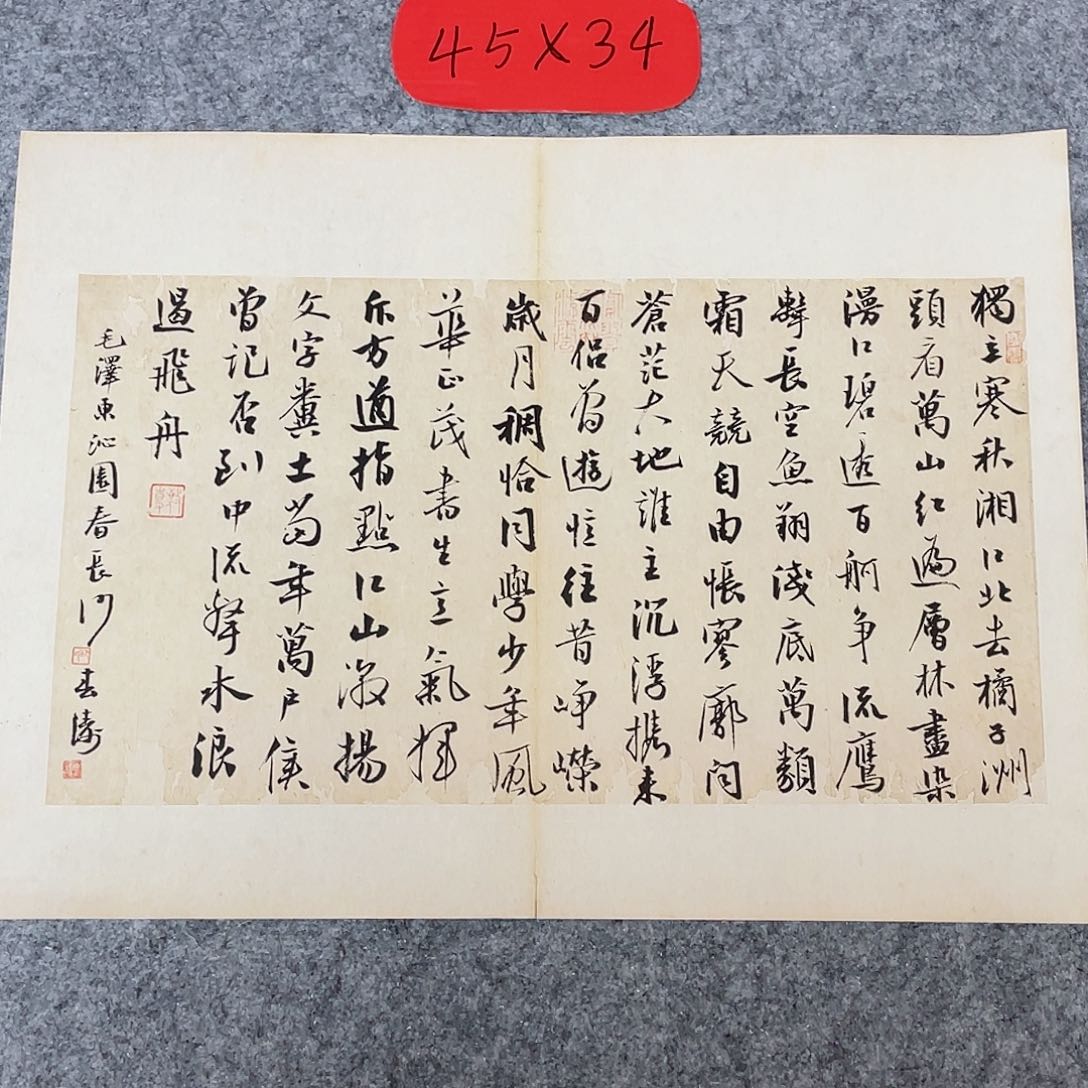 45X34
獨立寒秋湘江北去橘子洲
頭看萬山紅遍層林盡染
漫江碧透百舸争流鷹
擊長空魚翔淺底萬類
霜天競自由悵寥廓問
蒼茫大地誰主沉浮攜来
百侣曾遊憶往昔崢嶸
歲月稠恰同學少年風
華正茂書生意氣揮
斥方遒指點江山激揚
文字糞土當年萬户侯
曾記否到中流擊水浪
遏飛舟
毛澤東沁園春長沙 春濤